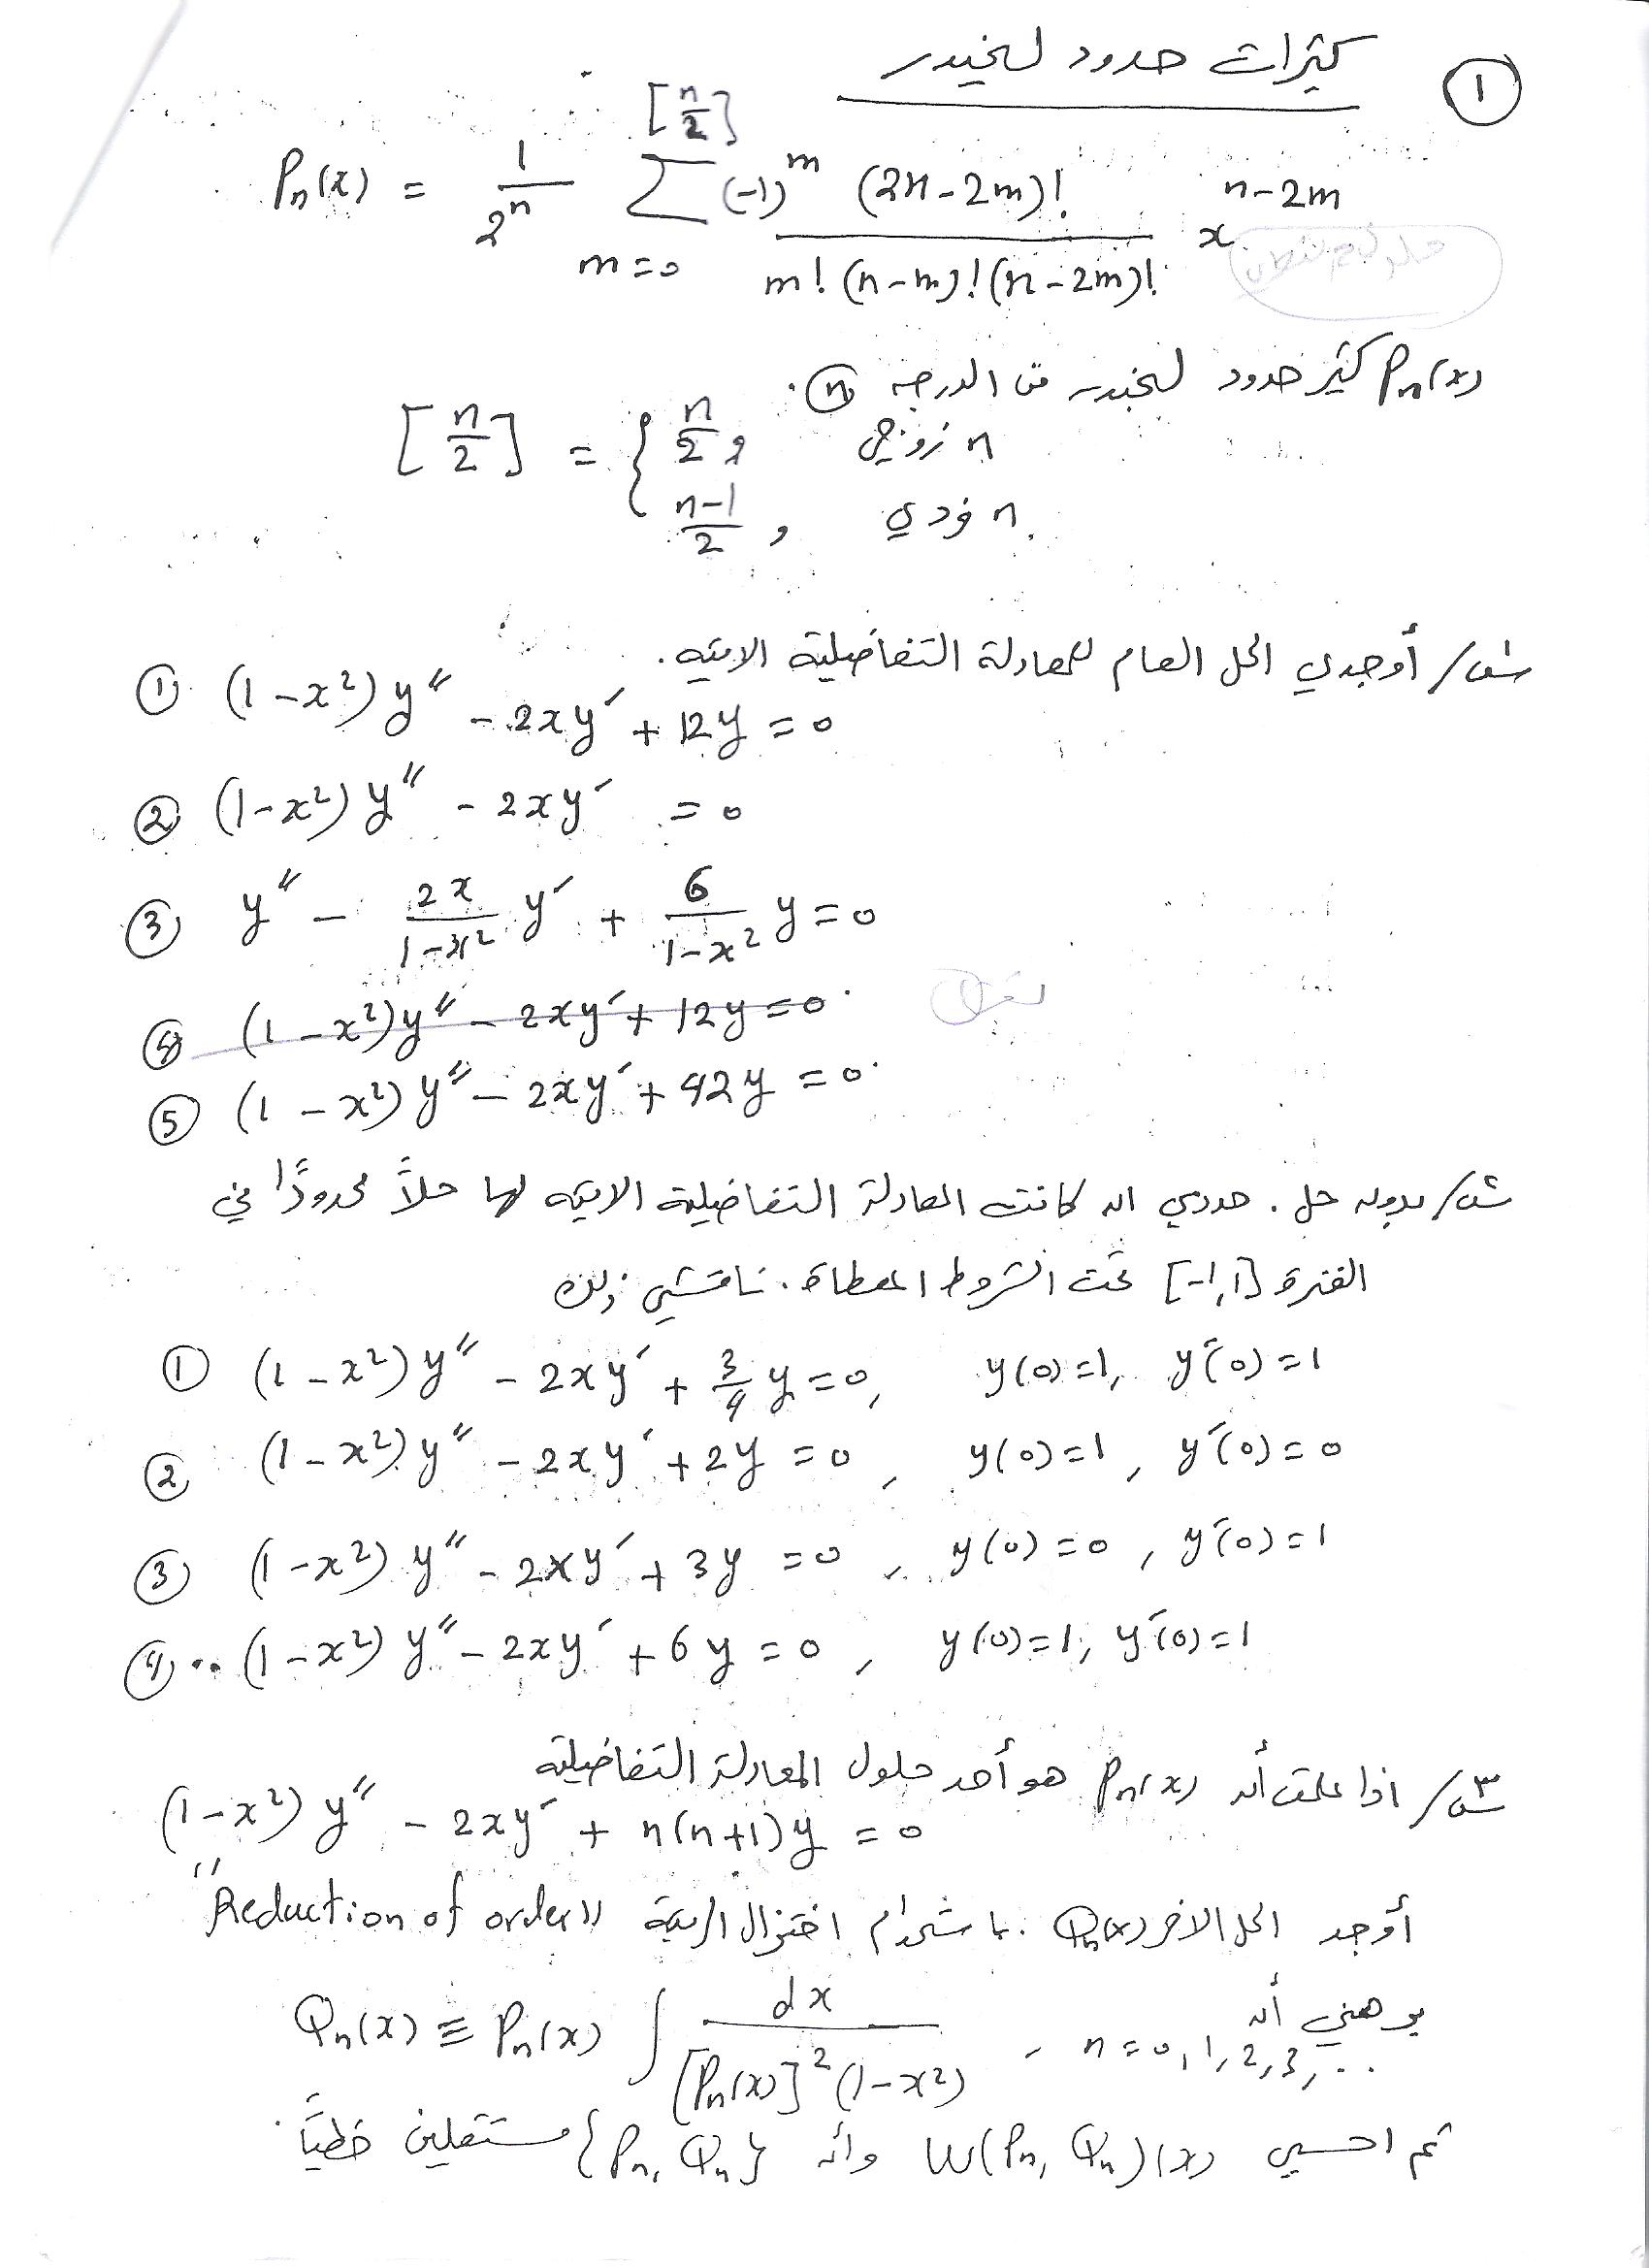 ①
كثيرات حدود لجندر
Pₙ(x) = 1/2ⁿ Σ_{m=0}^{[n/2]} (-1)ᵐ (2n-2m)! / m! (n-m)! (n-2m)! x^{n-2m}
Pₙ(x) كثير حدود لجندر من الدرجة n.
[n/2] = { n/2 , n زوجي
(n-1)/2 , n فردي
س١/ أوجدي الحل العام للمعادلة التفاضلية الاتية.
① (1-x²) y″ - 2xy′ + 12y = 0
② (1-x²) y″ - 2xy′ = 0
③ y″ - 2x/(1-x²) y′ + 6/(1-x²) y = 0
④ (1-x²) y″ - 2xy′ + 12y = 0
⑤ (1-x²) y″ - 2xy′ + 42y = 0
س٢/ بدون حل. حددي ان كانت المعادلة التفاضلية الاتية لها حلاً محدوداً في
الفترة [-1,1] تحت الشروط المعطاة. ناقشي ذلك
① (1-x²) y″ - 2xy′ + 3/4 y = 0, y(0)=1, y′(0)=1
② (1-x²) y″ - 2xy′ + 2y = 0, y(0)=1, y′(0)=0
③ (1-x²) y″ - 2xy′ + 3y = 0, y(0)=0, y′(0)=1
④ (1-x²) y″ - 2xy′ + 6y = 0, y(0)=1, y′(0)=1
س٣/ اذا علمت أن Pₙ(x) هو أحد حلول المعادلة التفاضلية
(1-x²) y″ - 2xy′ + n(n+1)y = 0
أوجد الحل الاخر Qₙ(x). باستخدام اختزال الرتبة "Reduction of order"
برهني أن
Qₙ(x) ≡ Pₙ(x) ∫ dx / [Pₙ(x)]² (1-x²) , n = 0, 1, 2, 3, ...
ثم احسبي W(Pₙ, Qₙ)(x) وأن {Pₙ, Qₙ} مستقلين خطياً.